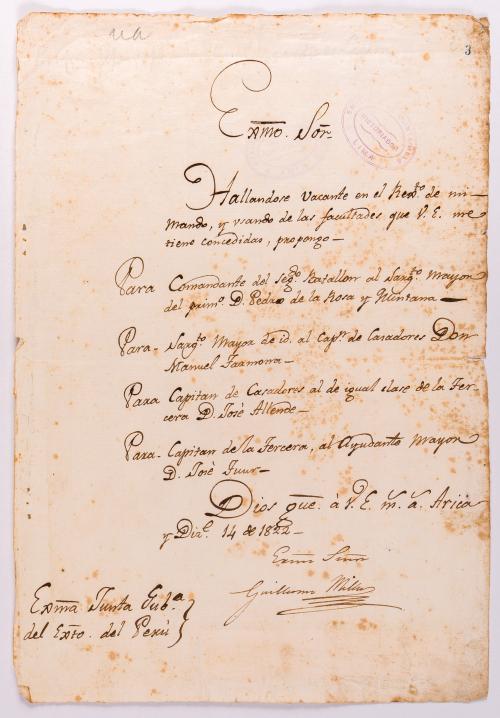 ua
3
Exmo. Sor.
Hallandose vacante en el Regto. de mi
mando, y usando de las facultades que V. E. me
tiene concedidas, propongo —
Para Comandante del Segdo. Batallon al Sargto. Mayor
del primo. D. Pedro de la Rosa y Quintana —
Para - Sargto. Mayor de id. al Capn. de Casadores Don
Manuel Taamona —
Para Capitan de Casadores al de igual clase de la Ter-
cera D. José Allende —
Para - Capitan de la Tercera, al Ayudante Mayor
D. José
Dios gue. à V. E. ms. as. Arica
y Dize. 14 de 1822 —
Exmo Señor
Guillermo Miller
Exma Junta Guba.
del Exto. del Perú
LIMA